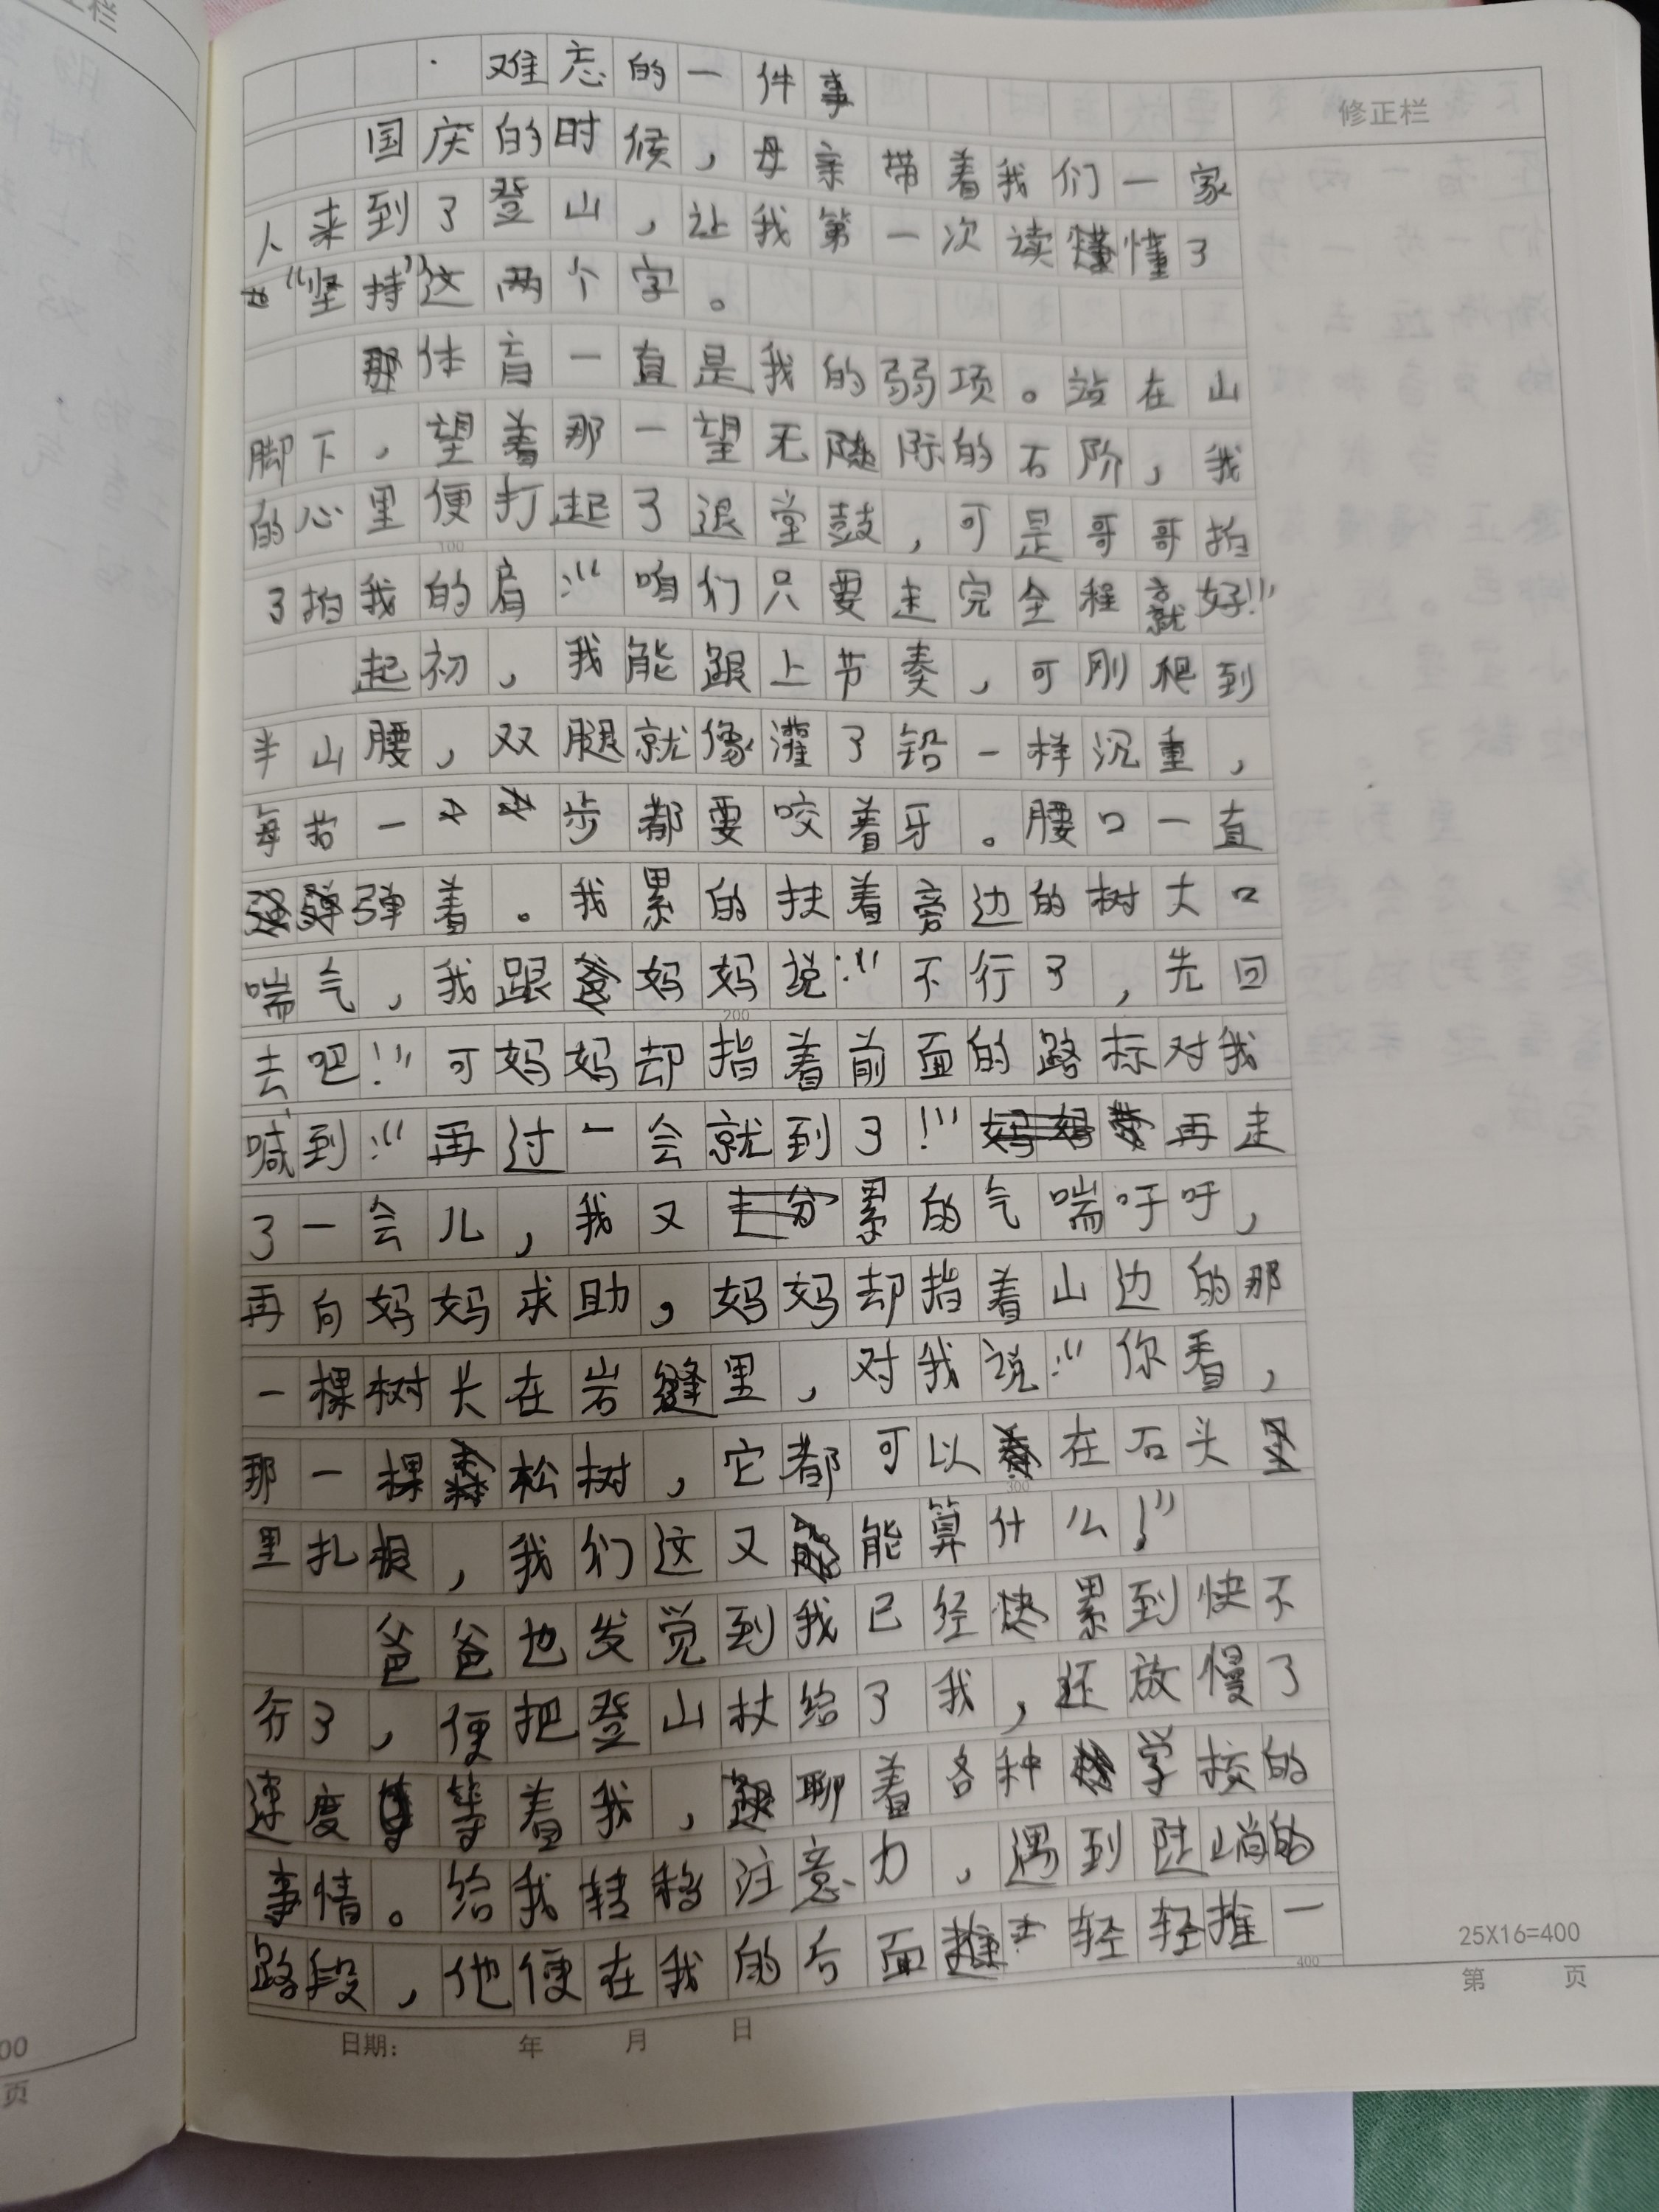 难忘的一件事
修正栏
国庆的时候，母亲带着我们一家
人来到了登山，让我第一次读懂了
“坚持”这两个字。
体育一直是我的弱项。站在山
脚下，望着那一望无际的石阶，我
的心里便打起了退堂鼓，可是哥哥拍
了拍我的肩：“咱们只要走完全程就好！”
起初，我能跟上节奏，可刚爬到
半山腰，双腿就像灌了铅一样沉重，
每若一步都要咬着牙。腰口一直
弹着。我累的扶着旁边的树大口
喘气，我跟妈妈说：“不行了，先回
去吧！”可妈妈却指着前面的路标对我
喊到：“再过一会就到了！”再走
了一会儿，我又累的气喘吁吁，
再向妈妈求助，妈妈却指着山边的那
一棵树长在岩缝里，对我说：“你看，
那一棵松树，它都可以在石头
里扎根，我们这又能算什么！”
爸爸也发觉到我已经累到快不
行了，便把登山杖给了我，还放慢了
速度等着我，聊着各种学校的
事情。给我转移注意力，遇到陡峭的
路段，他便在我的后面轻轻推一
100
200
300
400
25X16=400
第 页
日期： 年 月 日
00
页